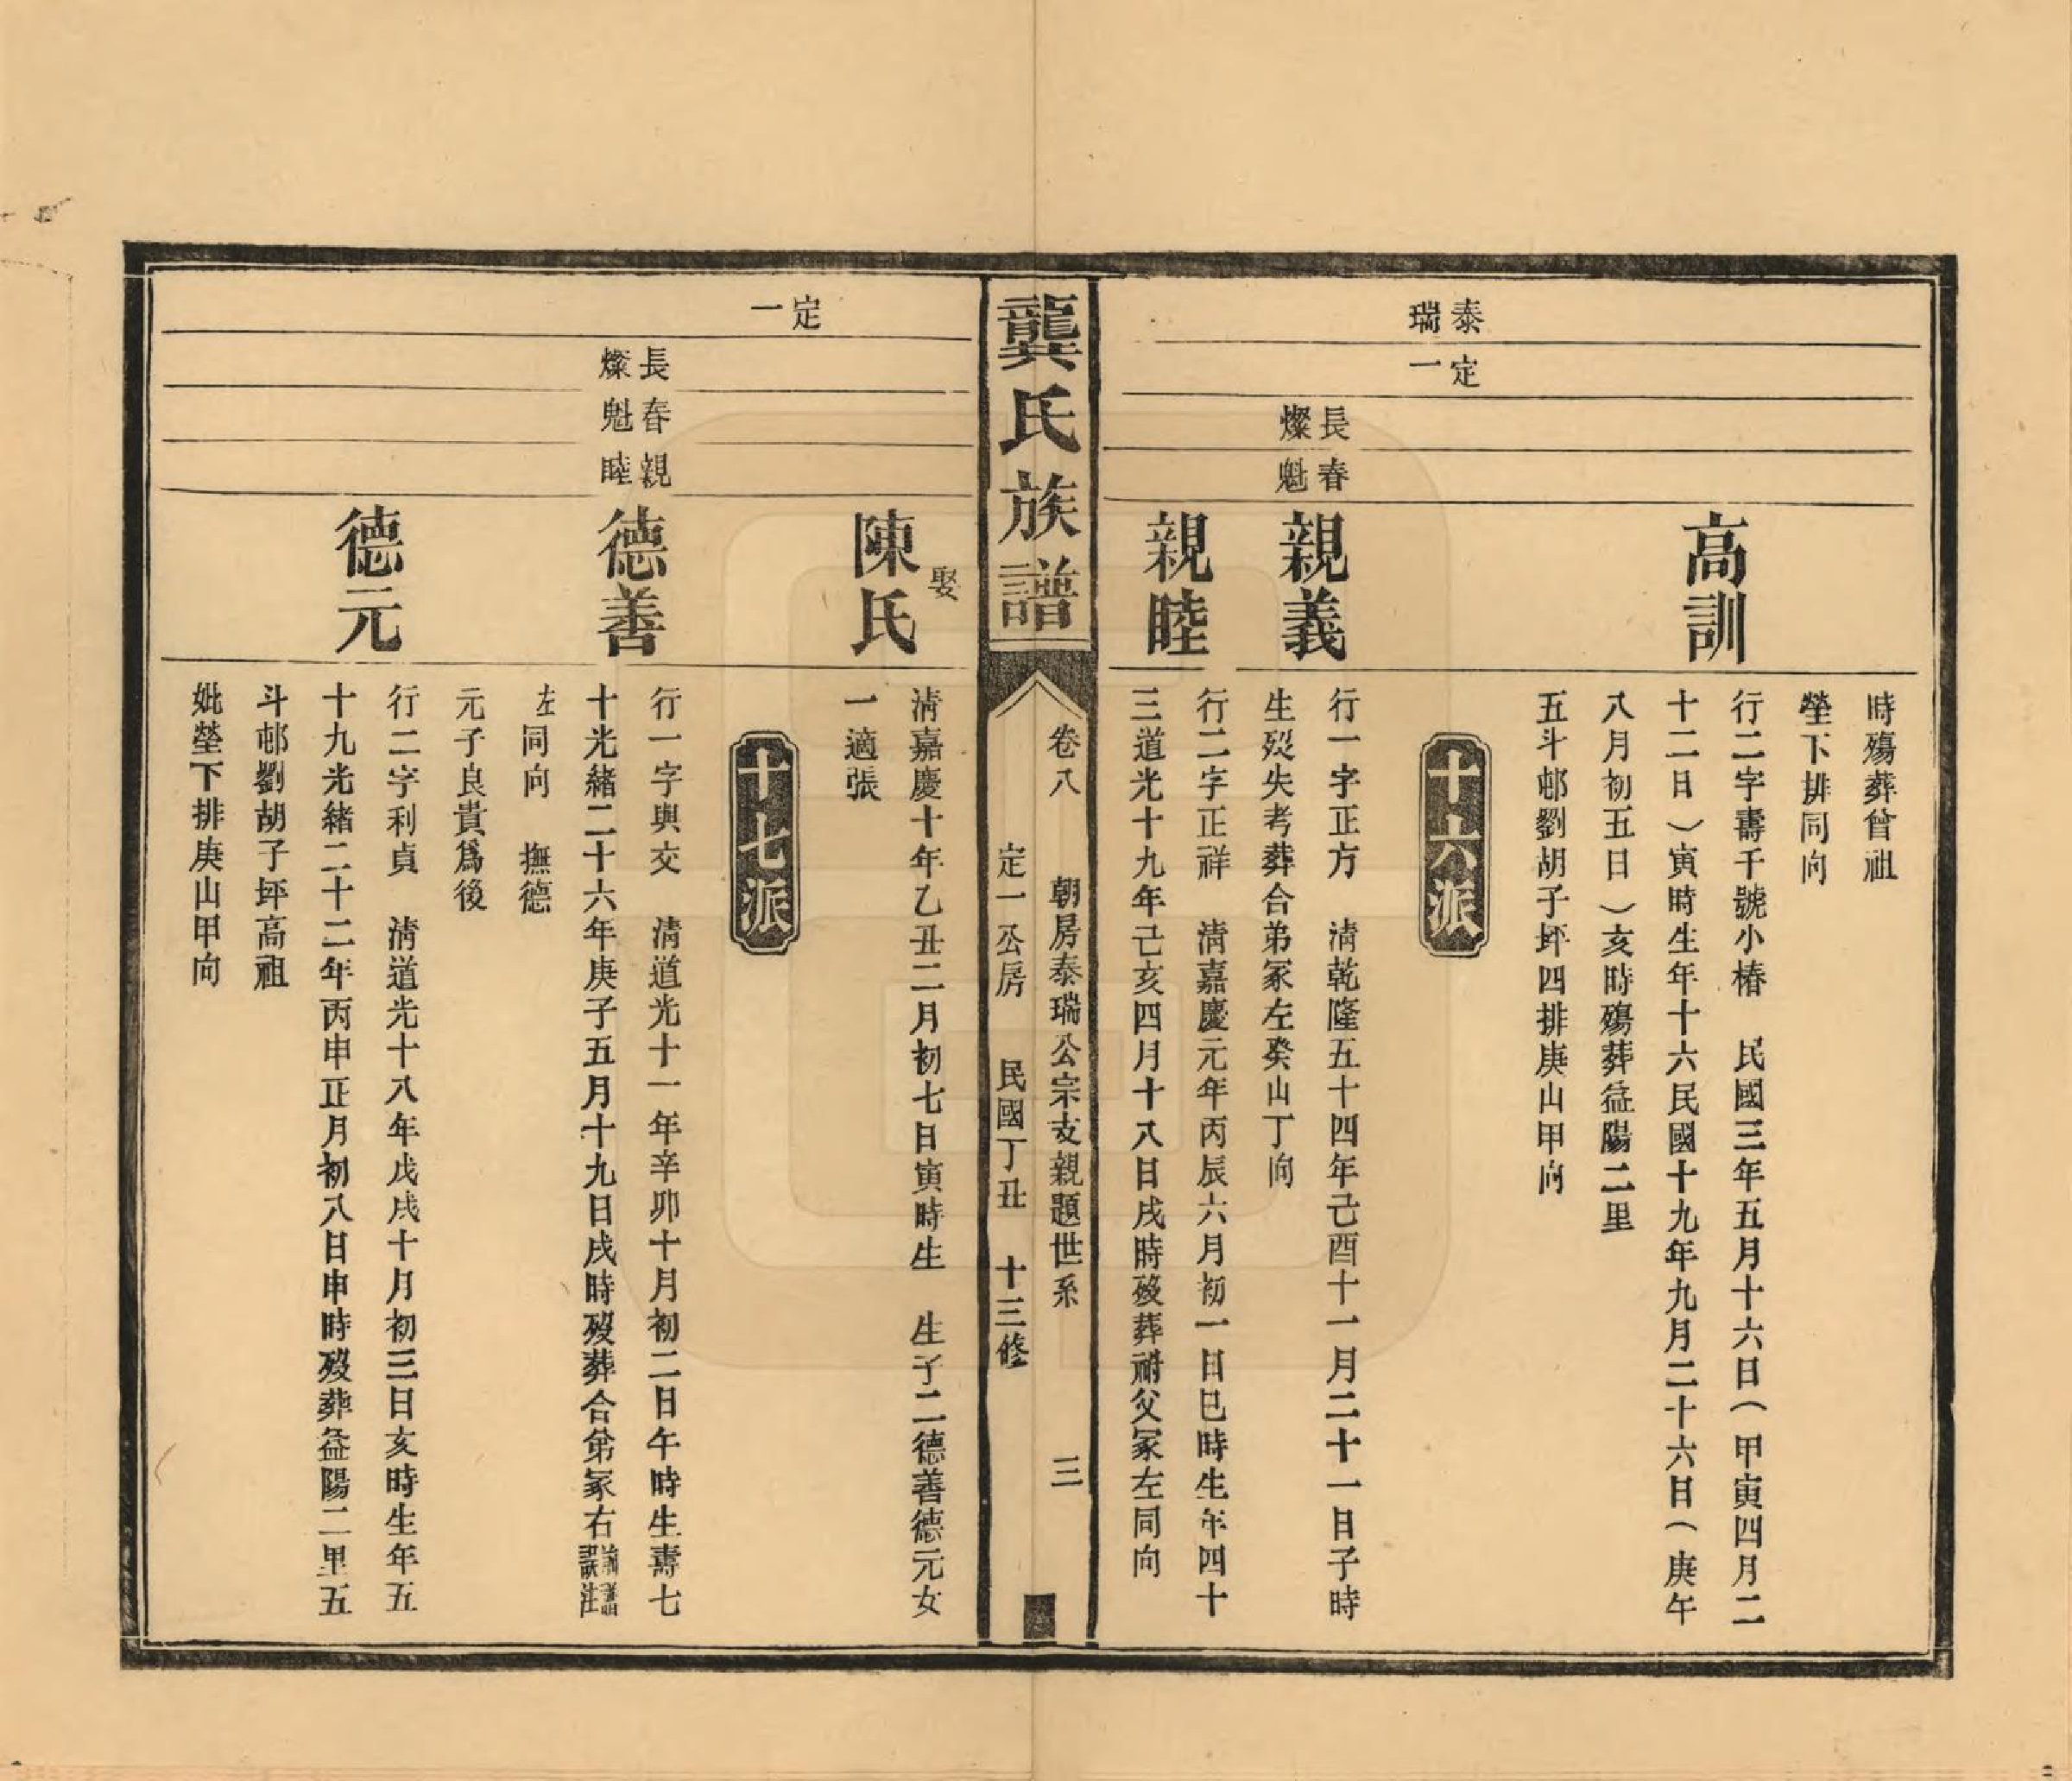 泰瑞
定一
長春
燦魁
時殤葬曾祖
塋下排同向
高訓
行二字壽千號小椿　民國三年五月十六日（甲寅四月二
十二日）寅時生年十六民國十九年九月二十六日（庚午
八月初五日）亥時殤葬益陽二里
五斗邨劉胡子坪四排庚山甲向
十六派
親義
行一字正方　清乾隆五十四年己酉十一月二十一日子時
生歿失考葬合弟冢左癸山丁向
親睦
行二字正祥　清嘉慶元年丙辰六月初一日巳時生年四十
三道光十九年己亥四月十八日戌時歿葬祔父冢左同向
龔氏族譜
卷八　朝房泰瑞公宗支親題世系　三
定一公房　民國丁丑　十三修
定一
長春親
燦魁睦
娶
陳氏
清嘉慶十年乙丑二月初七日寅時生　生子二德善德元女
一適張
十七派
德善
行一字與交　清道光十一年辛卯十月初二日午時生壽七
十光緒二十六年庚子五月十九日戌時歿葬合弟冢右前譜誤注
左同向　撫德
元子良貴爲後
德元
行二字利貞　清道光十八年戊戌十月初三日亥時生年五
十九光緒二十二年丙申正月初八日申時歿葬益陽二里五
斗邨劉胡子坪高祖
妣塋下排庚山甲向